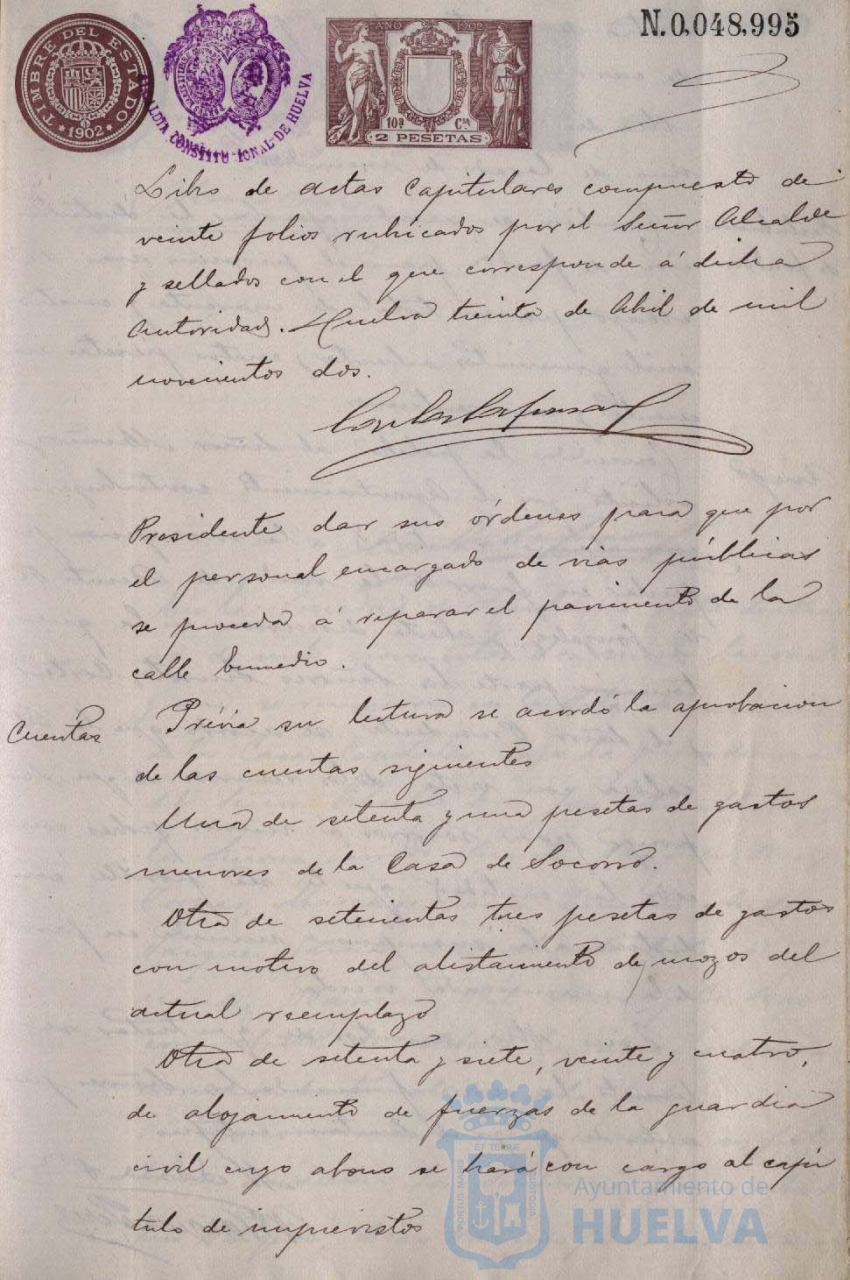 N.0,048,995
TIMBRE DEL ESTADO
*1902*
ALCALDIA CONSTITUCIONAL DE HUELVA
AÑO 1902
10ª Cª
2 PESETAS
Libro de actas Capitulares compuesto de
veinte folios rubricados por el Señor Alcalde
y sellados con el que corresponde á dicha
autoridad. Huelva treinta de Abril de mil
novecientos dos.
Presidente dar sus órdenes para que por
el personal encargado de vias públicas
se proceda á reparar el pavimento de la
calle Enmedio.
Cuentas
Prévia su lectura se acordó la aprobacion
de las cuentas siguientes
Una de setenta y una pesetas de gastos
menores de la Casa de Socorro.
Otra de setecientas tres pesetas de gastos
con motivo del alistamiento de mozos del
actual reemplazo
Otra de setenta y siete, veinte y cuatro,
de alojamiento de fuerzas de la guardia
civil cuyo abono se hará con cargo al capí
tulo de imprevistos
Ayuntamiento de
HUELVA